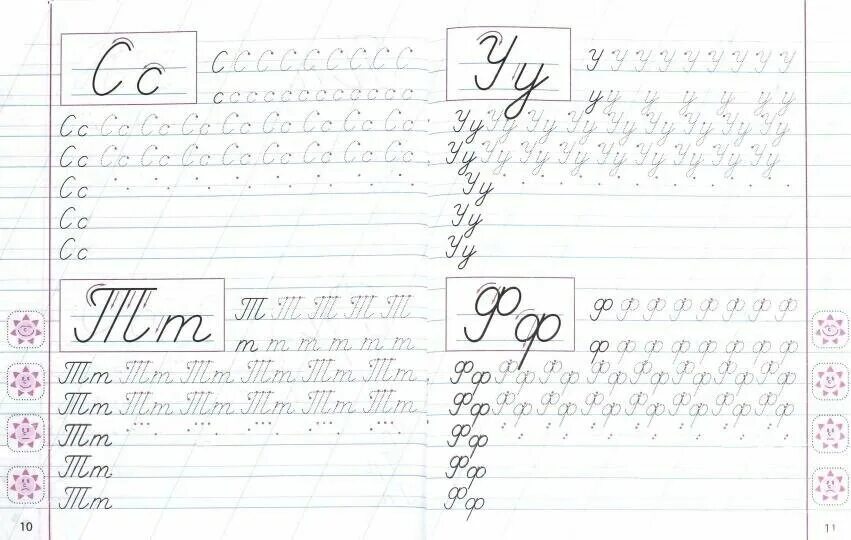 Сс
С С С С С С С С С
с с с с с с с с с с с с с
Сс Сс Сс Сс Сс Сс Сс Сс Сс
Сс Сс Сс Сс Сс Сс Сс Сс Сс
Сс
Сс
Сс
Тт
Т Т Т Т Т
т т т т т т
Тт Тт Тт Тт Тт Тт
Тт Тт Тт Тт Тт Тт
Тт
Тт
Тт
10
Уу
У У У У У У У У У
у у у у у у у
Уу Уу Уу Уу Уу Уу Уу Уу Уу
Уу Уу Уу Уу Уу Уу Уу Уу Уу
Уу
Уу
Уу
Фф
ф ф ф ф ф ф ф ф
ф ф ф ф ф ф ф ф
Фф Фф Фф Фф Фф Фф Фф Фф
Фф Фф Фф Фф Фф Фф Фф Фф
Фф
Фф
Фф
11